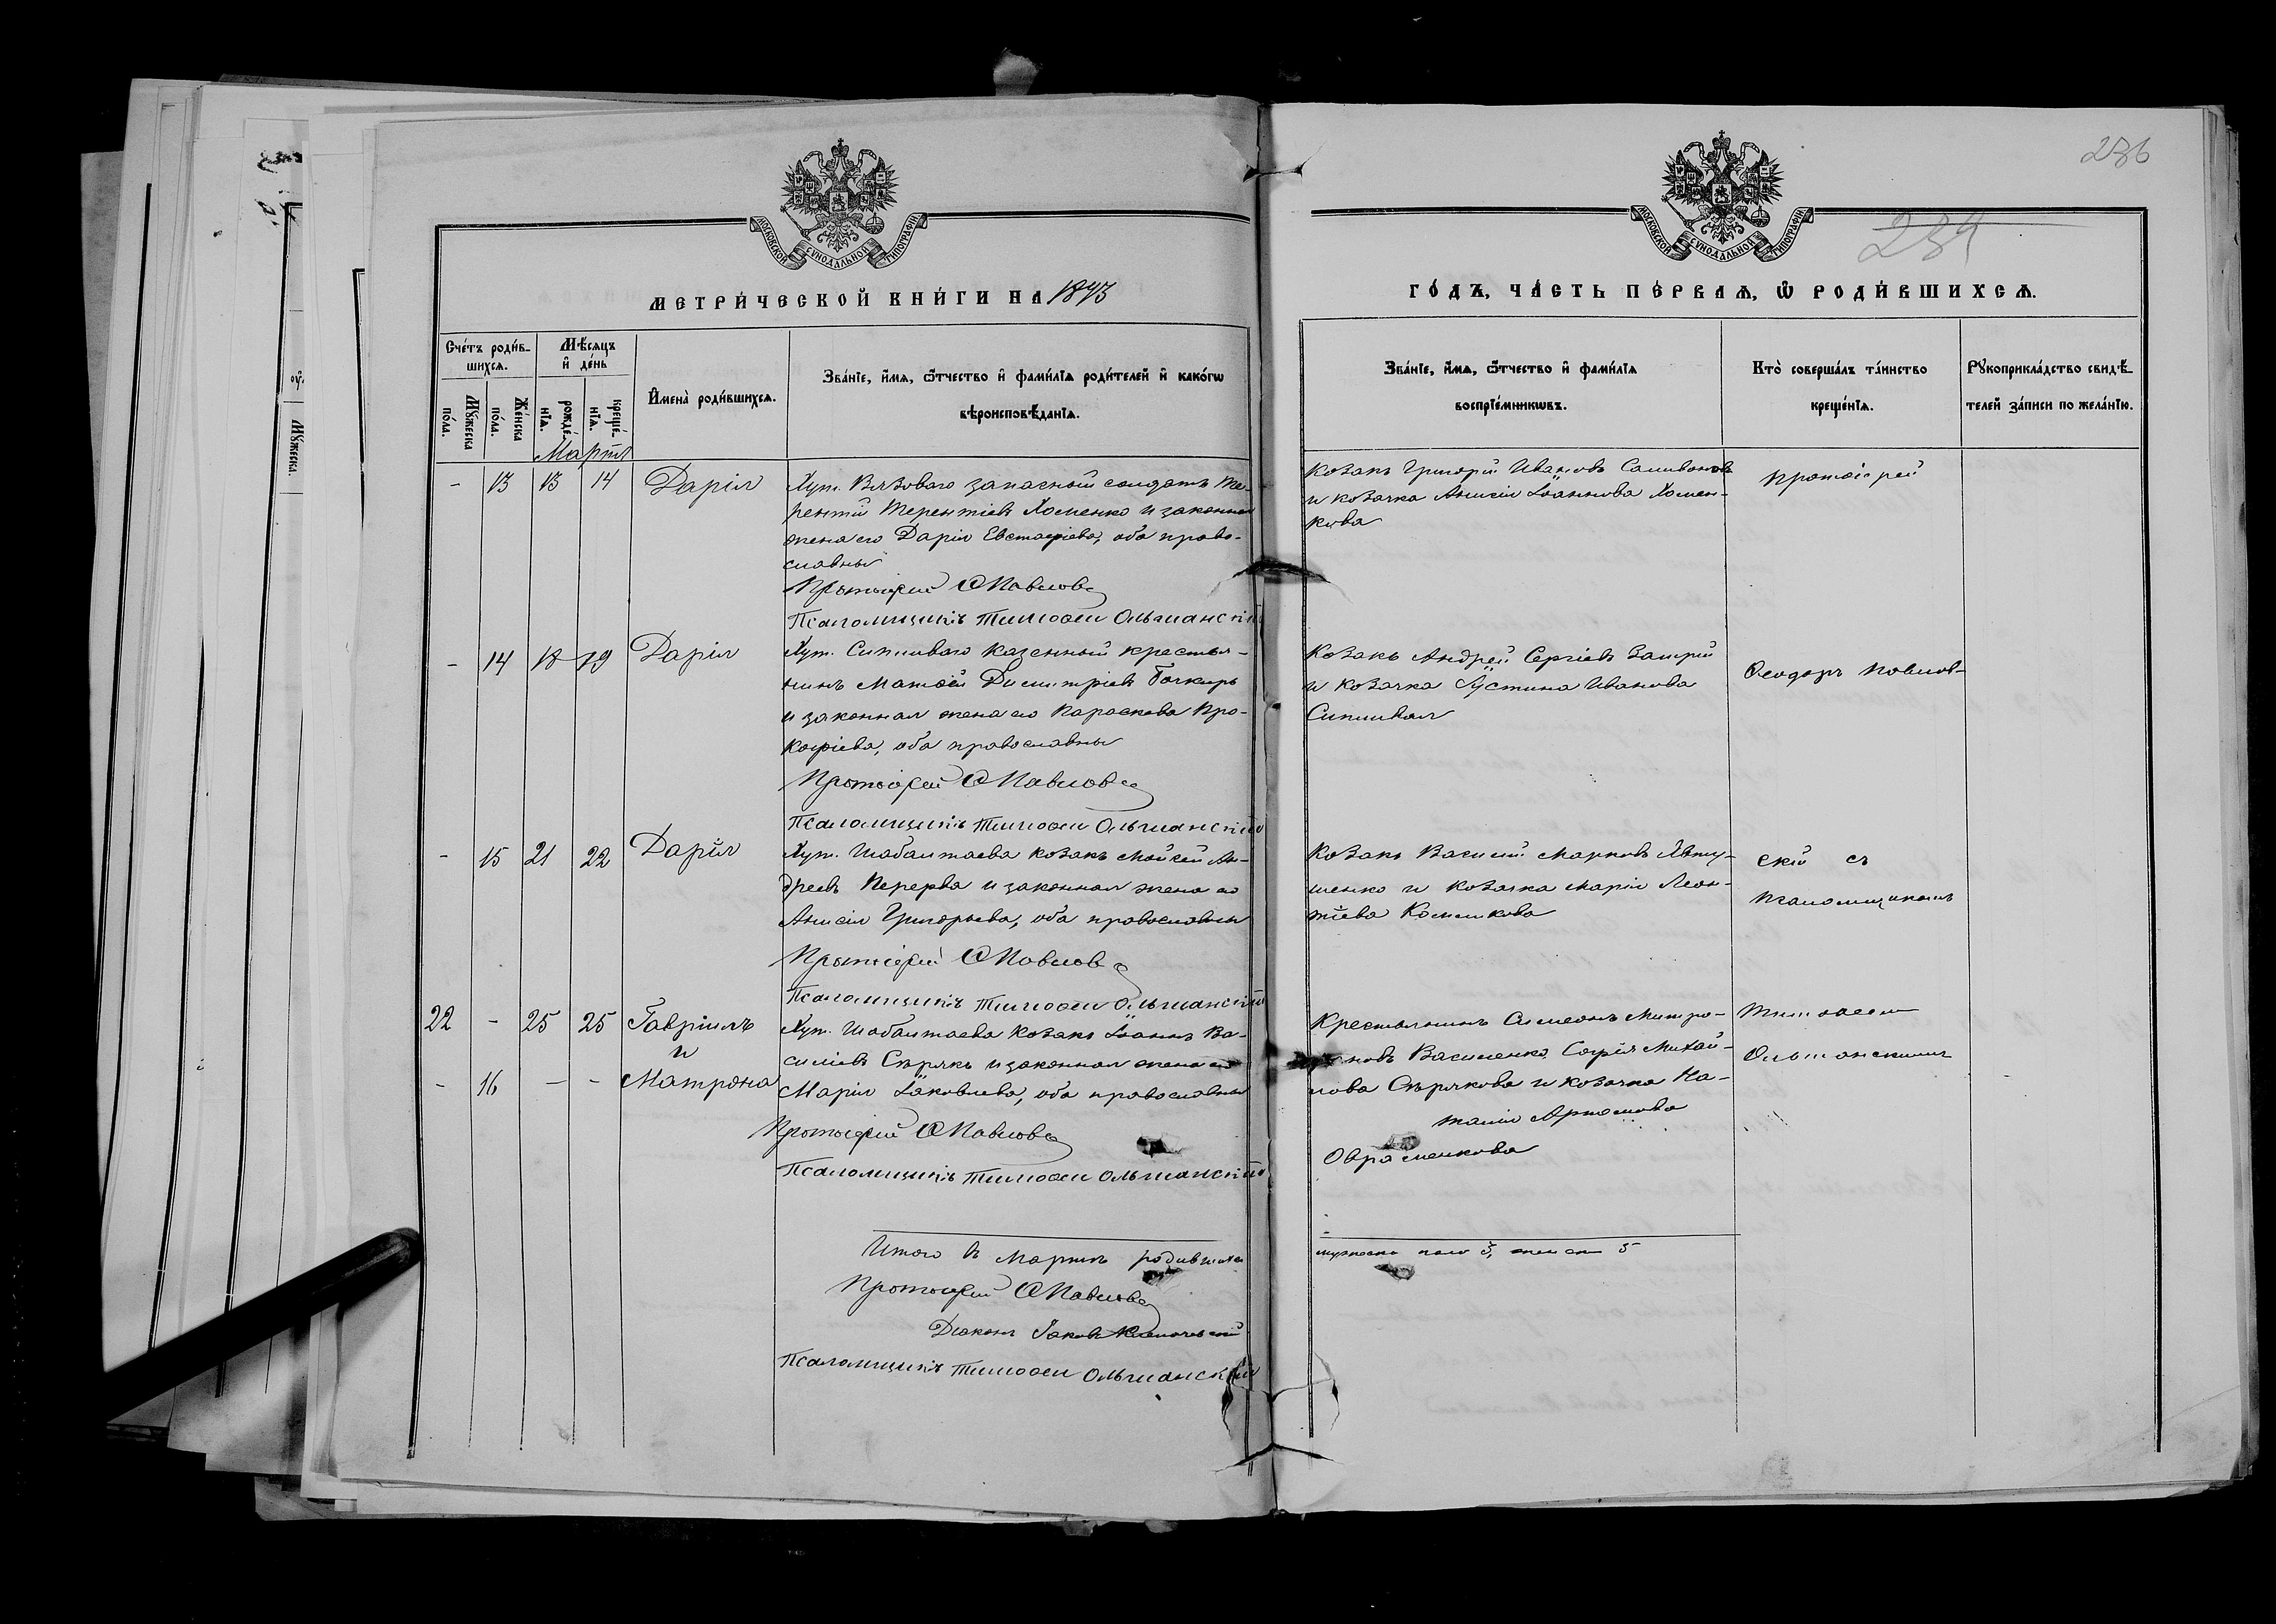 236
234
МОСКОВСКОЙ СУНОДАЛЬНОЙ ТИПОГРАФІИ
МОСКОВСКОЙ СУНОДАЛЬНОЙ ТИПОГРАФІИ
МЕТРИ́ЧЕСКОЙ КНИ́ГИ НА 1893
ГО́ДЪ, ЧА́СТЬ ПЕ́РВАѦ, Ѽ РОДИ́ВШИХСѦ.
Сче́тъ роди́в-
шихсѧ.
Мꙋ́жеска по́ла.
Же́нска по́ла.
Мѣ́сѧцъ
и҆ де́нь
рожде́-
нїѧ.
креще́-
нїѧ.
И҆мена̀ роди́вшихсѧ.
Зва́нїе, и҆́мѧ, ѻ҆́тчество и҆ фами́лїѧ роди́телей и҆ како́гѡ
вѣроисповѣ́данїѧ.
Зва́нїе, и҆́мѧ, ѻ҆́тчество и҆ фами́лїѧ
воспрїе́мникѡвъ.
Кто̀ соверша́лъ та́инство
креще́нїѧ.
Рꙋкоприкла́дство свидѣ́-
телей за́писи по жела́нїю.
Мартъ
- 13 13 14 Дарія
Хут. Вязоваго запасный солдатъ Те-
рентій Терентіевъ Хоменко и законная
жена его Дарія Евстафіева, оба право-
славны
Протоіерей Ѳ Павловс
Псаломщикъ Тимоѳей Ольшанскій
Козакъ Григорій Ивановъ
и козачка Анисія Іоаннова Хомен-
кова
Протоіерей
- 14 18 19 Дарія
Хут. Сиплываго казенный крестья-
нинъ Матѳій Димитріевъ
и законная жена его Параскева Про-
кофіева, оба православны
Протоіерей Ѳ Павловс
Псаломщикъ Тимоѳей Ольшанскій
Козакъ Андрей Сергіевъ
и козачка Іустина Иванова
Сиплывая
Ѳеодоръ Павлов-
- 15 21 22 Дарія
Хут. Шабалтаева козакъ Мойсей Ан-
дреевъ Перерва и законная жена его
Анисія Григорьева, оба православны
Протоіерей Ѳ Павловс
Псаломщикъ Тимоѳей Ольшанскій
Козакъ Василій Марковъ Явту-
шенко и козачка Марія Леон-
тіева
скій съ
псаломщикомъ
22 - 25 25 Гавріилъ
и
- 16 - - Матрона
Хут. Шабалтаева козакъ Іоаннъ Ва-
силіевъ Сѣрякъ и законная жена его
Марія Іаковлева, оба православны
Протоіерей Ѳ Павловс
Псаломщикъ Тимоѳей Ольшанскій
Крестьянинъ Симеонъ Митро-
новъ Василенко, Софія Михай-
лова Сѣрякова и козачка На-
талія Артемова
Овраменкова
Тимоѳеем
Ольшанскимъ
Итого въ Мартѣ родившихся
мужеска пола 5, женска 5
Протоіерей Ѳ Павловс
Діаконъ Іаковъ
Псаломщикъ Тимоѳей Ольшанскій